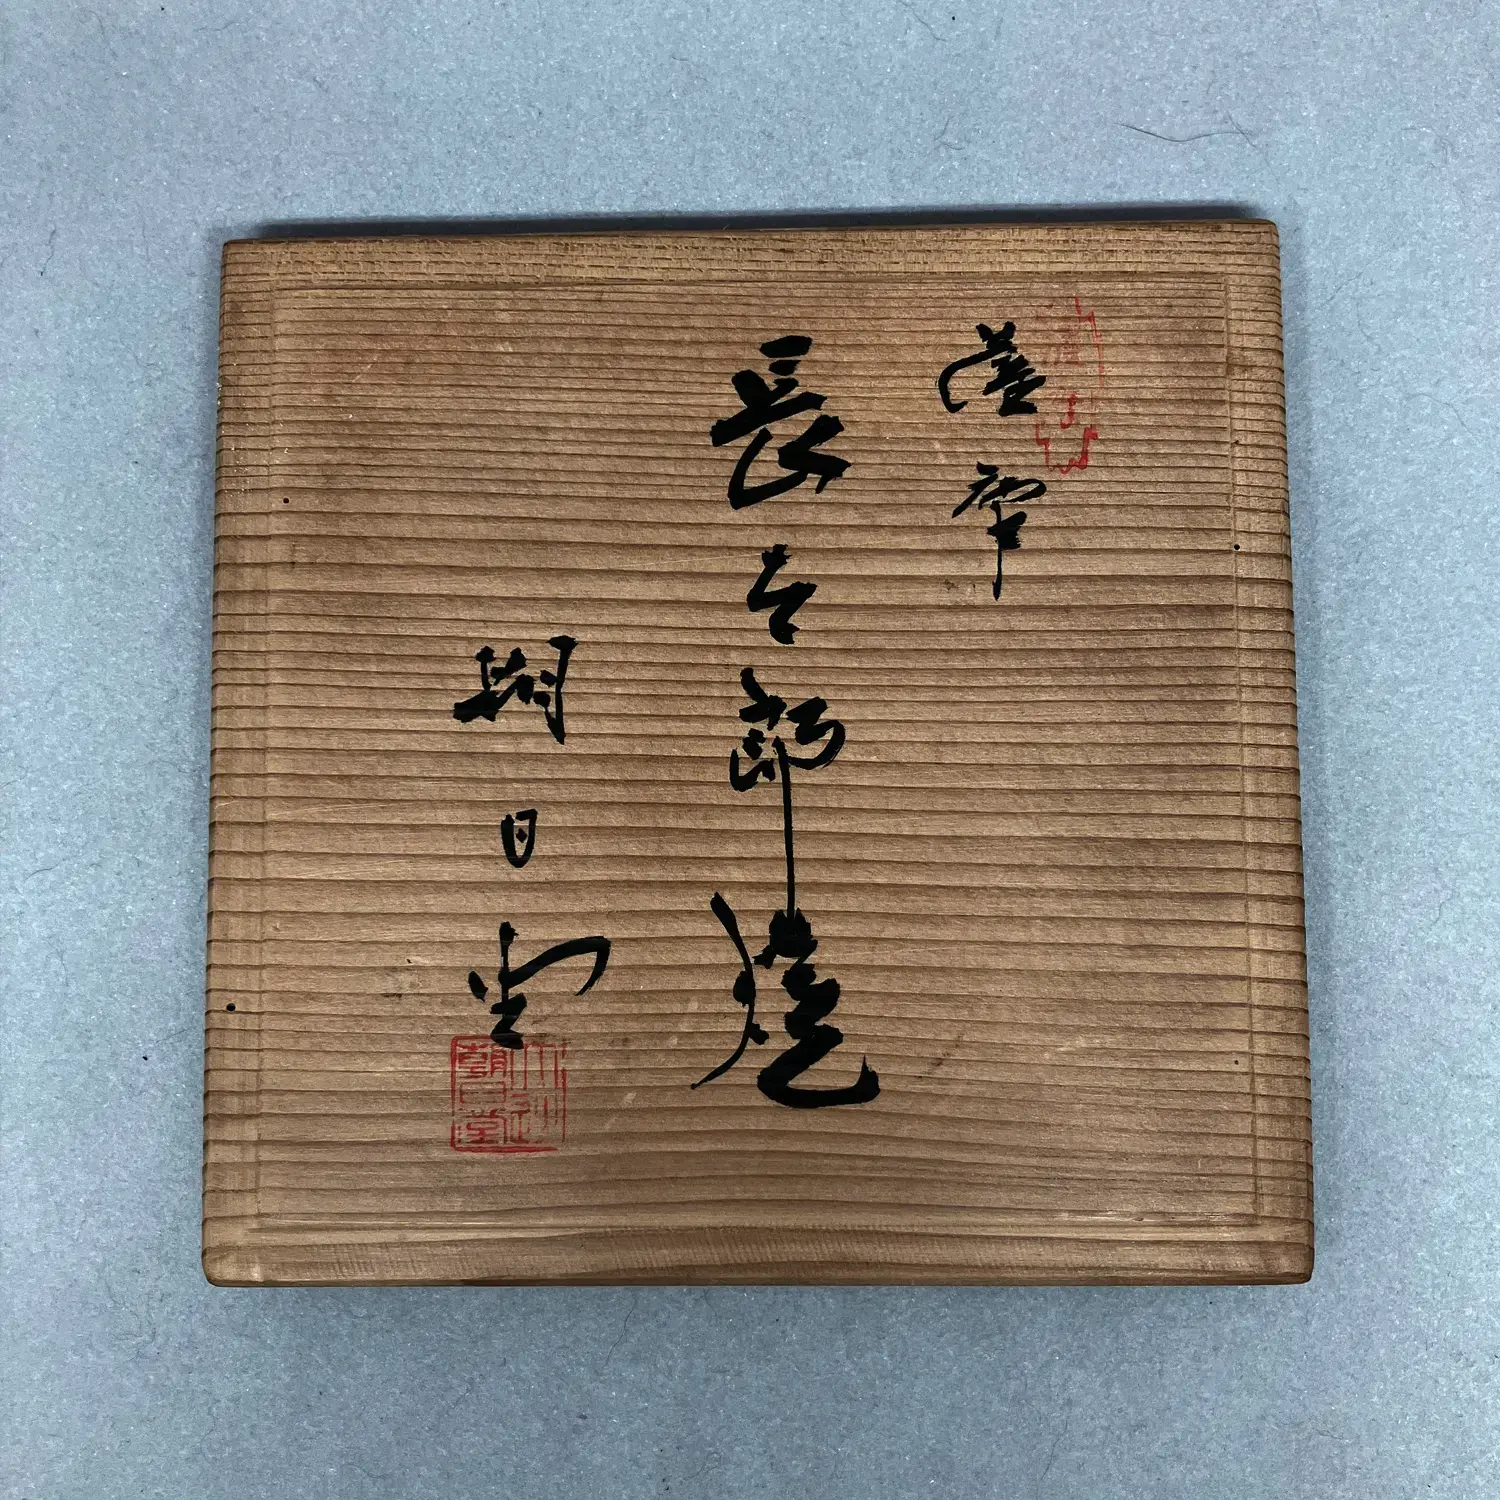 薩摩
長太郎焼
朝日堂
朝日堂